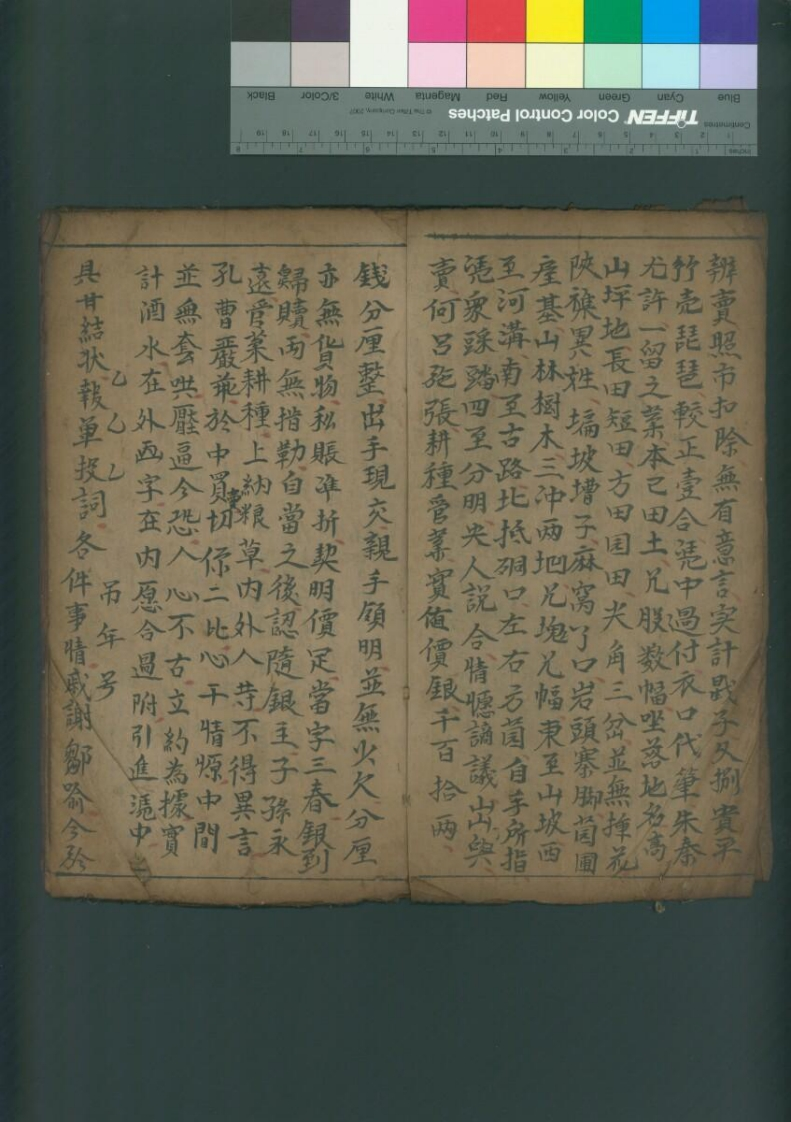 辦賣照市扣除無有意言实計戥子久捌賣早
竹売琵琶較正壹合凴中過付衣口代筆朱秦
尤許一留之葉本己田土兄股数幅坐落地名高
山坪地長田短田方田园田尖角三岔並無揷花
陝 異姓塥坡壋子麻窝了口岩頭寨脚茵圃
座基山林樹木三冲两 兄塊兄幅東至山坡西
至河溝南至古路北抵硐口左右方茵自手所指
凴衆踩踏四至分明央人説合情愿謪議山與
賣何呂 張耕種管業實値價銀千百拾両
錢分厘整出手現交親手領明並無少欠分厘
亦無貨物私賬準折契明價足當字三春銀到
歸贖両無揩勒自當之後認隨銀主子孫永
遠管葉耕種上納粮草内外人苛不得異言
孔曹嚴華於中買賣切你二比心干情愿中間
並無套哄壓逼今恐人心不古立約為據實
計酒水在外画字在内愿合過附引進凴中
乙乙乙 吊年号
具甘結状報单投詞各件事情戚謝鄒喻今
Blue Cyan Green Yellow Red Magenta White 3/Color Black
TIFFEN Color Control Patches © The Tiffen Company, 2007
Centimetres
Inches